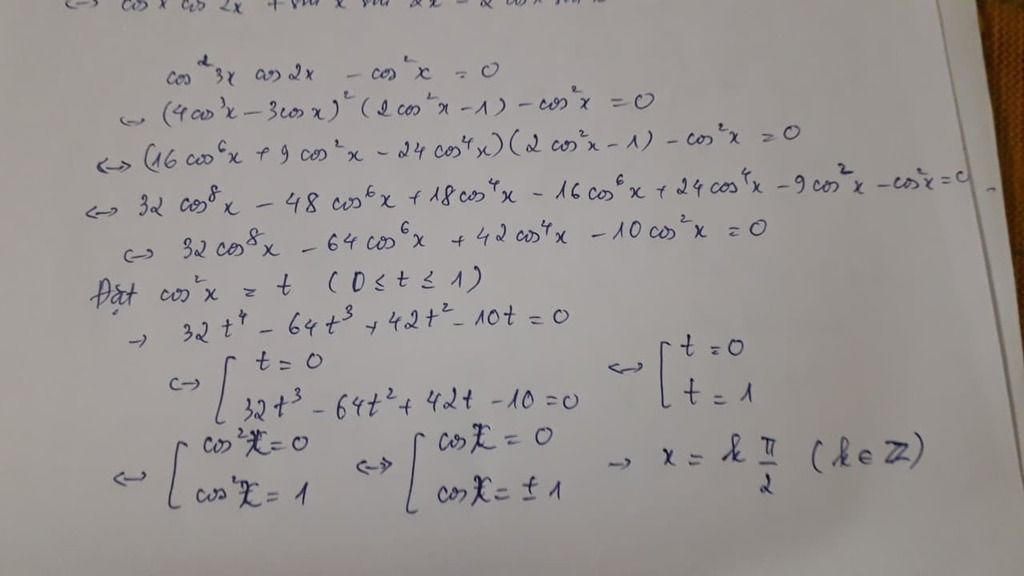 cos x cos 2x + sin x sin 2x
cos²3x cos2x - cos²x = 0
↔ (4cos³x - 3cosx)² (2cos²x - 1) - cos²x = 0
↔ (16cos⁶x + 9cos²x - 24cos⁴x)(2cos²x - 1) - cos²x = 0
↔ 32cos⁸x - 48cos⁶x + 18cos⁴x - 16cos⁶x + 24cos⁴x - 9cos²x - cos²x = 0
↔ 32cos⁸x - 64cos⁶x + 42cos⁴x - 10cos²x = 0
Đặt cos²x = t (0 ≤ t ≤ 1)
→ 32t⁴ - 64t³ + 42t² - 10t = 0
↔ [ t = 0 ↔ [ t = 0
32t³ - 64t² + 42t - 10 = 0 t = 1
↔ [ cos²x = 0 ↔ [ cosx = 0 → x = k π/2 (k ∈ ℤ)
cos²x = 1 cosx = ± 1